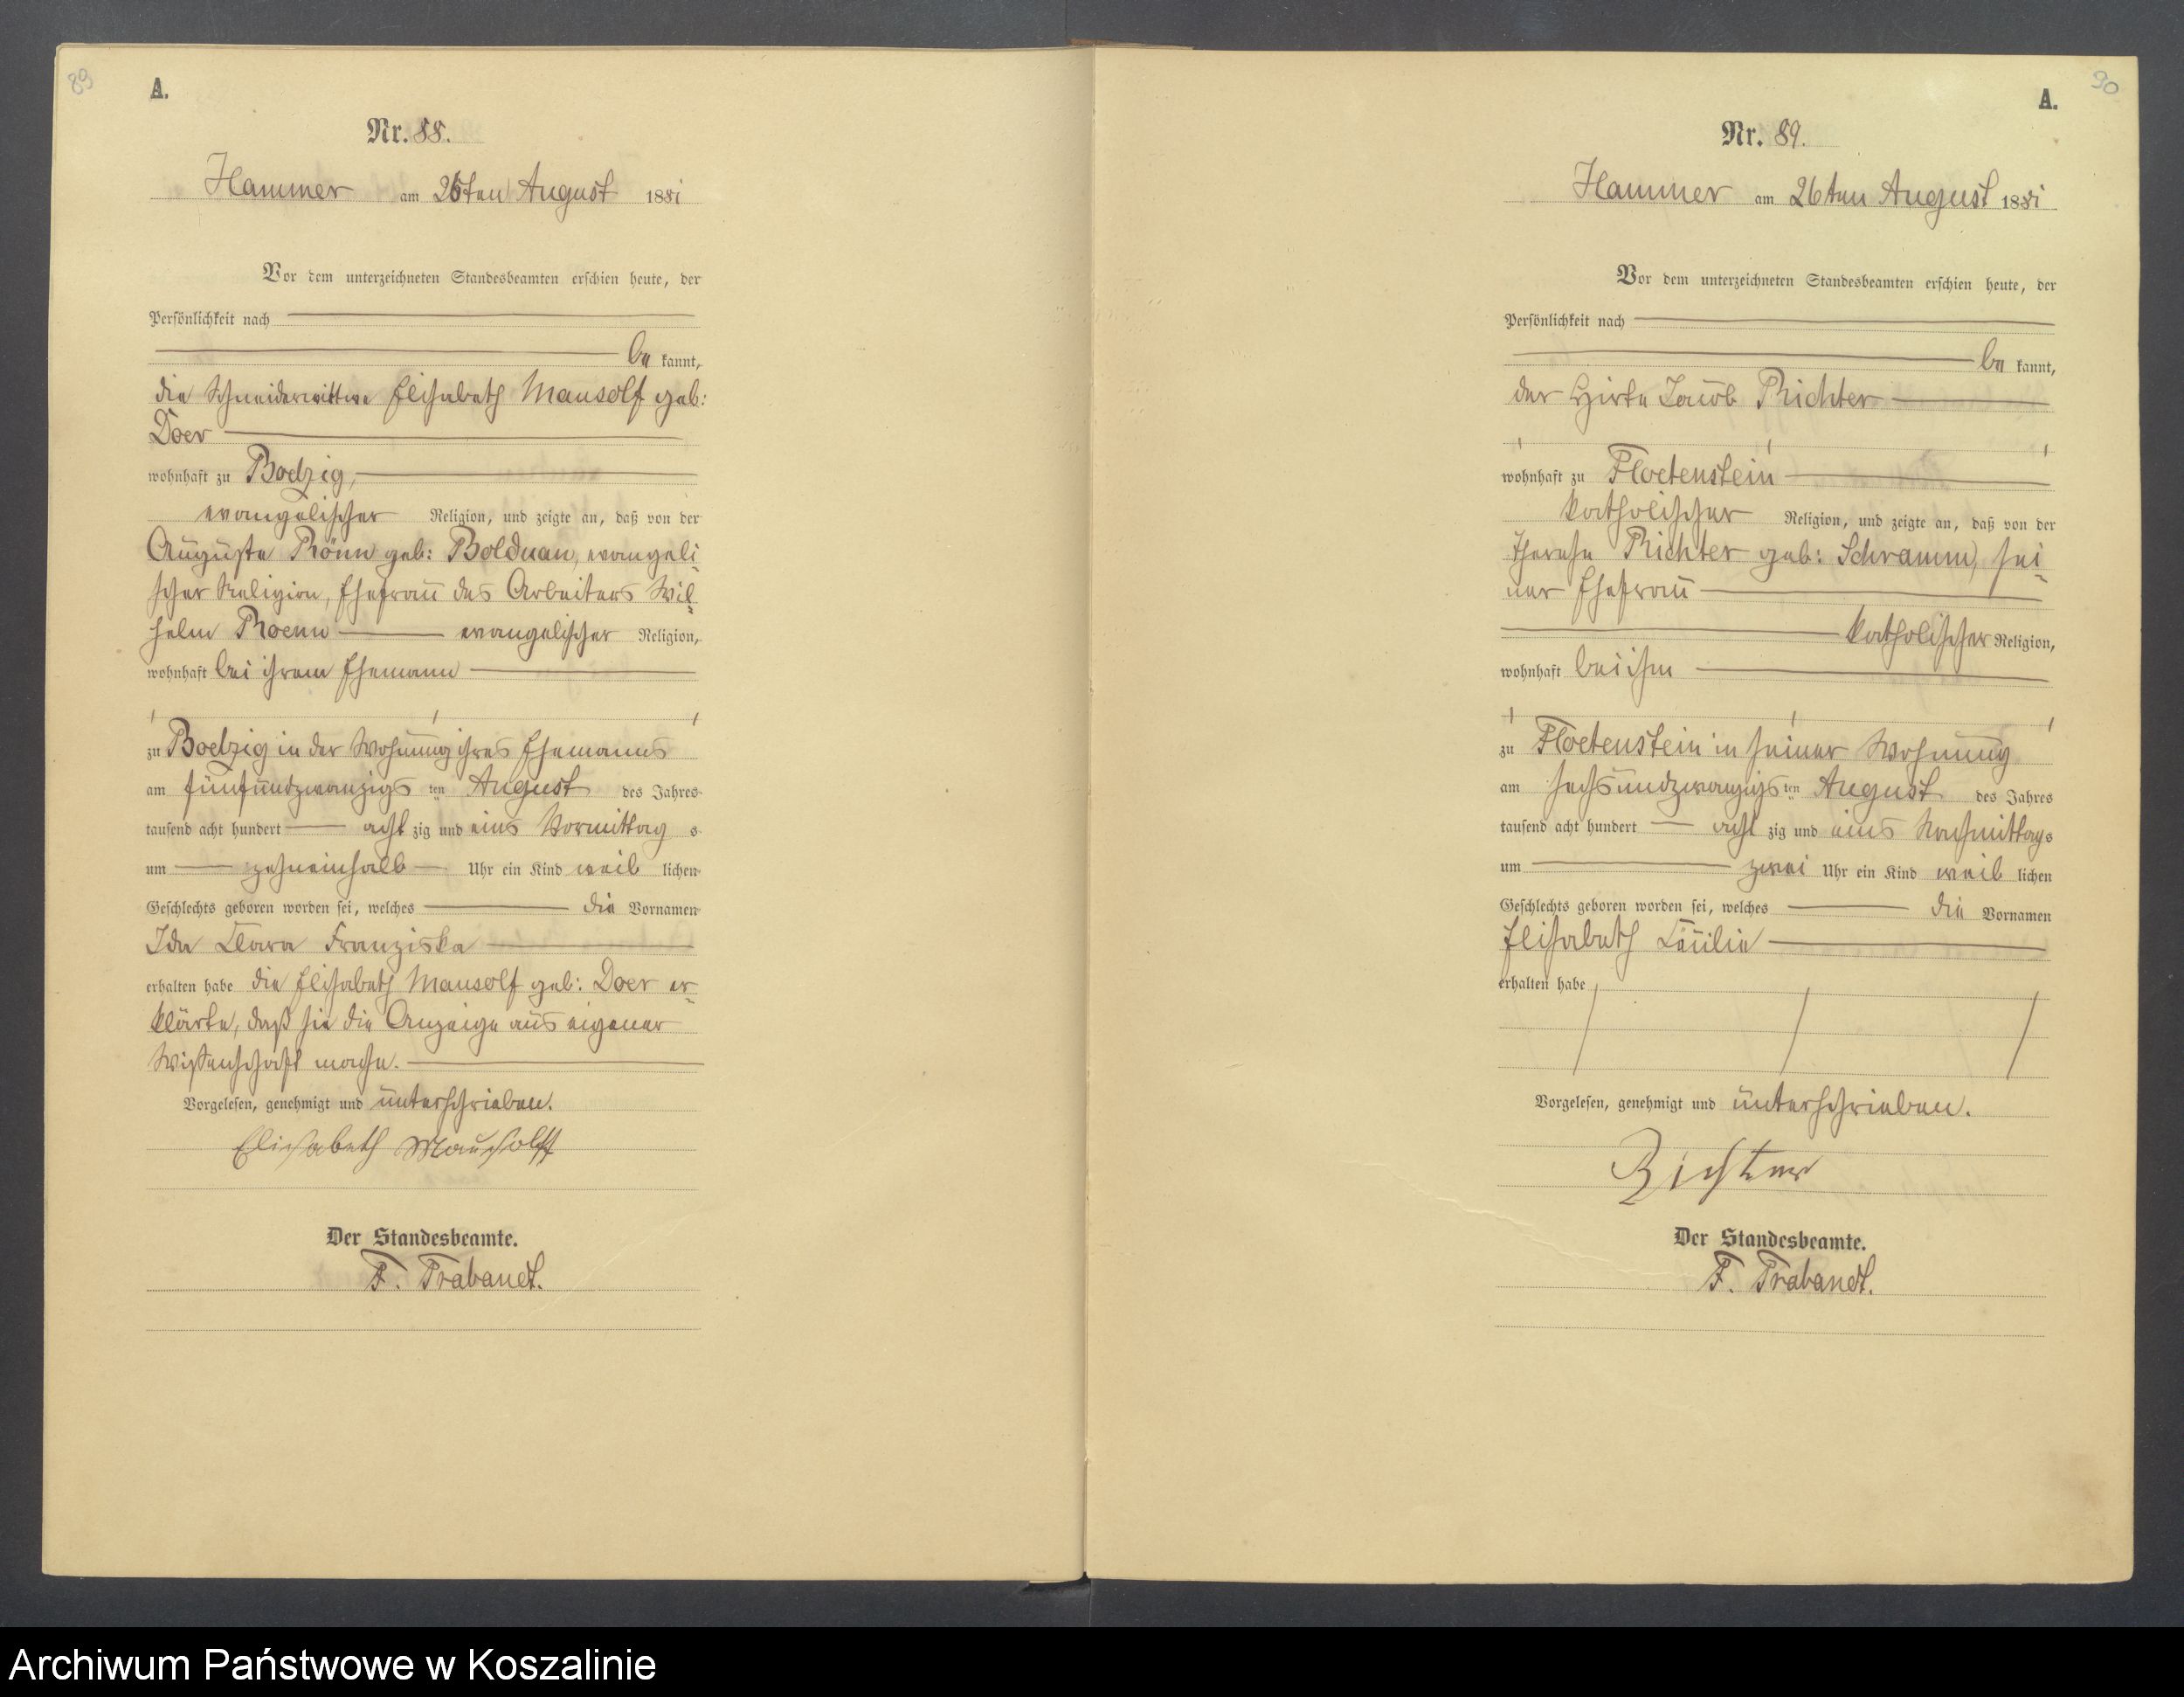 89
A.
Nr. 88.
Hammer am 26ten August 1881
Vor dem unterzeichneten Standesbeamten erschien heute, der
Persönlichkeit nach
be kannt,
die Schneiderwittwe Elisabeth Mansolf geb:
Doer
wohnhaft zu Boelzig,
evangelischer Religion, und zeigte an, daß von der
Auguste Rönn geb: Bolduan, evangeli-
scher Religion, Ehefrau des Arbeiters Wil-
helm Roenn evangelischer Religion,
wohnhaft bei ihrem Ehemann
zu Boelzig in der Wohnung ihres Ehemannes
am fünfundzwanzigs ten August des Jahres
tausend acht hundert acht zig und eins Vormittag s
um zehneinhalb Uhr ein Kind weib lichen
Geschlechts geboren worden sei, welches die Vornamen
Ida Clara Franziska
erhalten habe die Elisabeth Mansolf geb: Doer er-
klärte, daß sie die Anzeige aus eigener
Wissenschaft mache.
Vorgelesen, genehmigt und unterschrieben.
Elisabeth Mausolff
Der Standesbeamte.
F. Trabandt.
90
A.
Nr. 89.
Hammer am 26ten August 1881
Vor dem unterzeichneten Standesbeamten erschien heute, der
Persönlichkeit nach
be kannt,
der Hirte Jacob Richter
wohnhaft zu Floetenstein
katholischer Religion, und zeigte an, daß von der
Therese Richter geb: Schramm, sei-
ner Ehefrau
katholischer Religion,
wohnhaft bei ihm
zu Floetenstein in seiner Wohnung
am sechsundzwanzigs ten August des Jahres
tausend acht hundert acht zig und eins Nachmittags
um zwei Uhr ein Kind weib lichen
Geschlechts geboren worden sei, welches die Vornamen
Elisabeth Cäcilie
erhalten habe
Vorgelesen, genehmigt und unterschrieben.
Richter
Der Standesbeamte.
F. Trabandt.
Archiwum Państwowe w Koszalinie